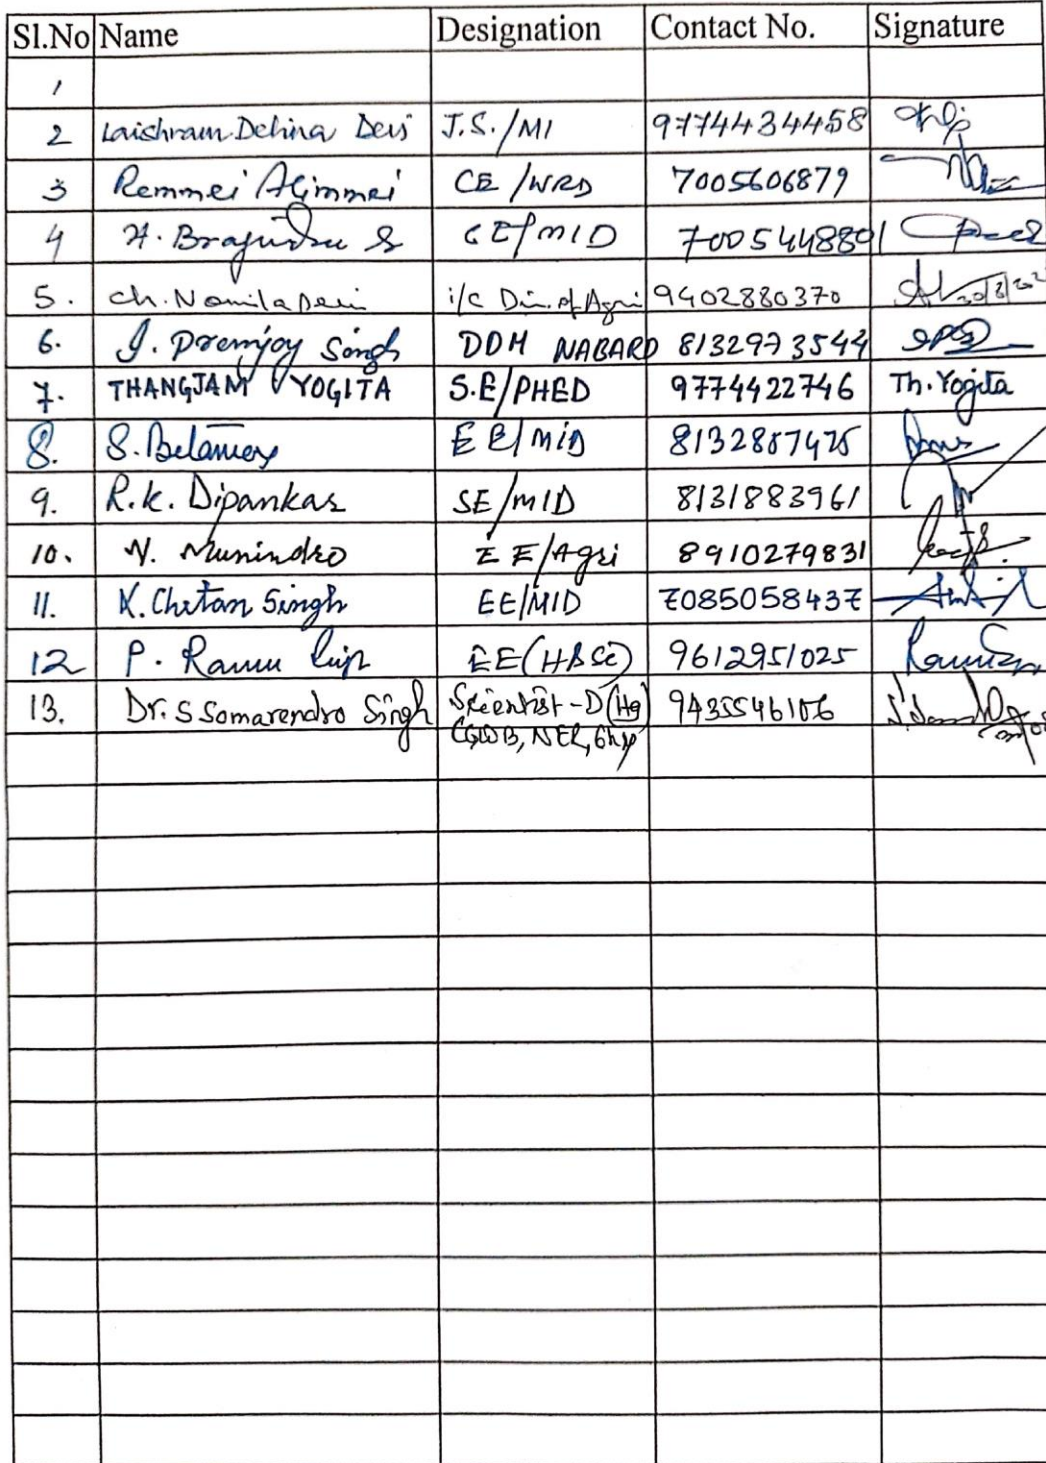 Sl.No Name Designation Contact No. Signature
1
2 Laishram Delina Devi J.S./MI 9774434458
3 Remmei Alimmei CE/WRD 7005606879
4 H. S CE/MID 7005448891
5. Ch. Nomila Devi i/c Dir. of Agri 9402880370
6. J. Premjoy Singh DDM NABARD 8132973544
7. THANGJAM YOGITA S.E/PHED 9774422746 Th. Yogita
8. S. EE/MID 8132887425
9. R.k. Dipankar SE/MID 8131883961
10. N. Munindro EE/Agri 8910279831
11. K. Chetan Singh EE/MID 7085058437
12 P. Ramu EE 9612951025
13. Dr. S Somarendro Singh Scientist-D (Hg) 9435546106
CGWB, NER, Ghy